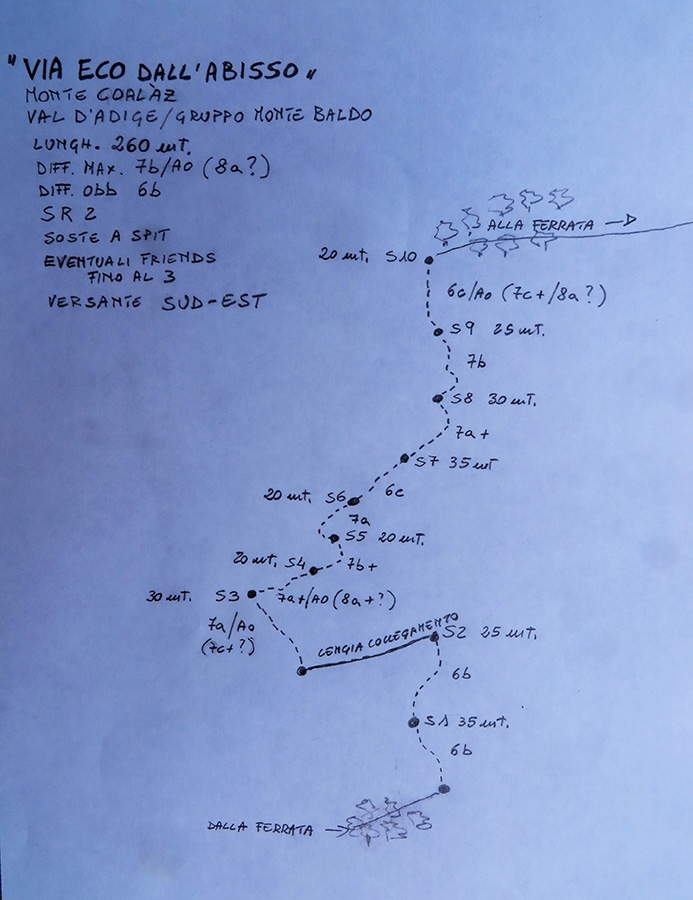 "VIA ECO DALL'ABISSO"
MONTE COALÀZ
VAL D'ADIGE/GRUPPO MONTE BALDO
LUNGH. 260 mt.
DIFF. MAX. 7b/A0 (8a?)
DIFF. Obb 6b
SR 2
SOSTE A SPIT
EVENTUALI FRIENDS
FINO AL 3
VERSANTE SUD-EST
ALLA FERRATA
20 mt. S10
6c/A0 (7c+/8a?)
S9 25 mt.
7b
S8 30 mt.
7a+
S7 35 mt
6c
20 mt. S6
7a
S5 20 mt.
20 mt. S4 7b+
30 mt. S3 7a+/A0 (8a+?)
7a/A0
(7c+?)
CENGIA COLLEGAMENTO
S2 25 mt.
6b
S1 35 mt.
6b
DALLA FERRATA